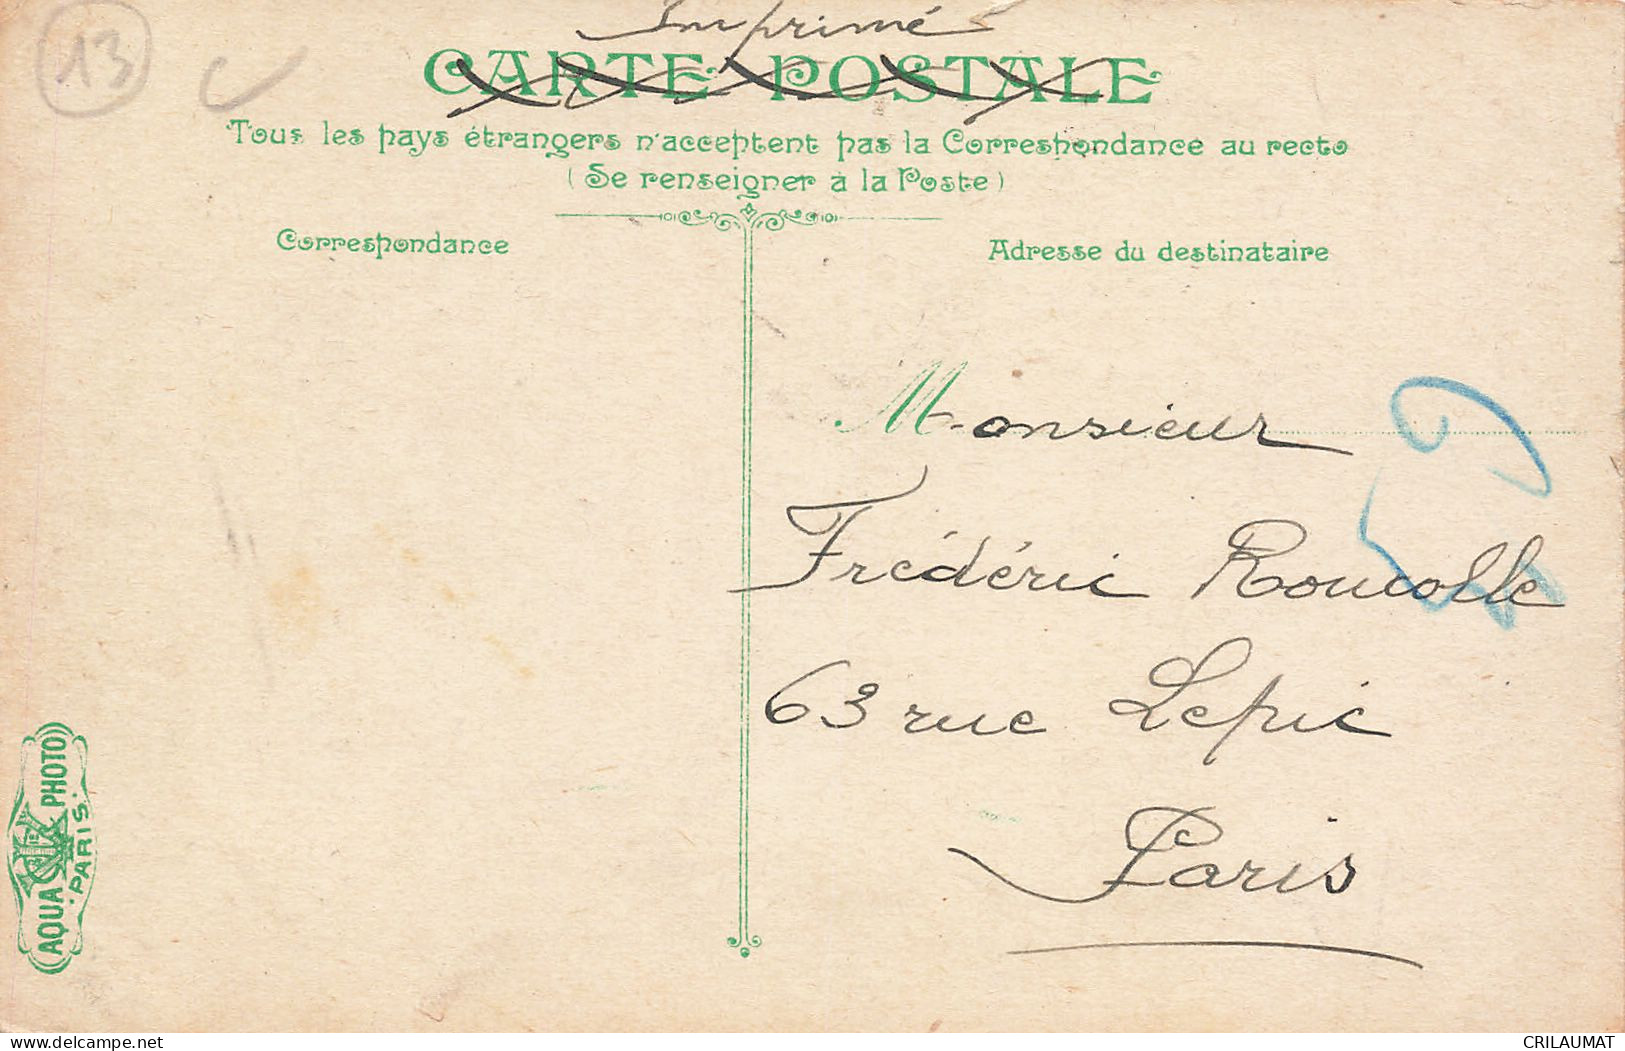 13
Imprimé
CARTE POSTALE
Tous les pays étrangers n'acceptent pas la Correspondance au recto
(Se renseigner à la Poste)
Correspondance
Adresse du destinataire
Monsieur
Frédéric Roucolle
63 rue Lepic
Paris
AQUA PHOTO
PARIS
www.delcampe.net
CRILAUMAT